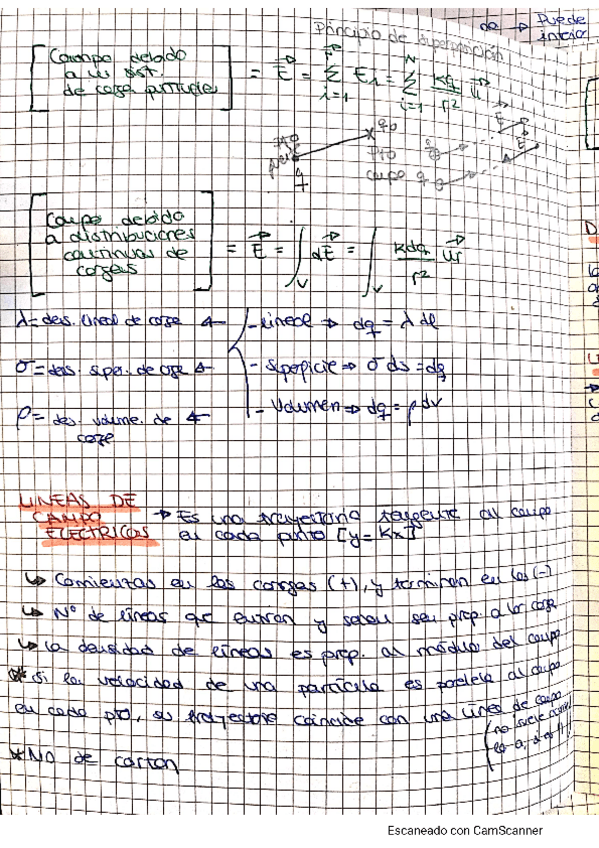 Principio de superposición
Puede
[Campo debido
a un sist.
de carga puntuales] = E⃗ = Σ i=1 N Ei = Σ i=1 N kq/r² u⃗
q0
Pto
campo q
[Campo debido
a distribuciones
continuas de
cargas] = E⃗ = ∫V dE⃗ = ∫V kdq/r² u⃗r
λ = des. lineal de carga ← - Lineal ⇒ dq = λ dl
σ = des. super. de carga ← - superficie ⇒ σ ds = dq
ρ = des. volume. de ← - Volumen ⇒ dq = ρ dv
carga
LINEAS DE
CAMPO
ELECTRICOS
→ Es una trayectoria tangente al campo
en cada punto [y = kx]
↳ Comienzas en las cargas (+), y terminan en las (-)
↳ Nº de líneas que entran y salen son prop. a la carga
↳ La densidad de líneas es prop. al módulo del campo
* Si la velocidad de una partícula es paralela al campo
en cada pto, su trayectoria coincide con una linea de campo
(no
* No se cortan
Escaneado con CamScanner